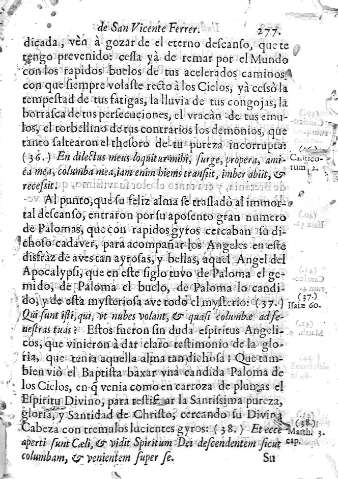 de San Vicente Ferrer. 277.
dicada, vèn à gozar de el eterno descanso, que te
tengo prevenido: cessa yà de remar por el Mundo
con los rapidos buelos de tus acelerados caminos
con que siempre volaste recto à los Cielos, yà cessò la
tempestad de tus fatigas, la lluvia de tus congojas, la
borrasca de tus persecuciones, el vracàn de tus emu-
los, el torbellino de tus contrarios los demonios, que
tanto saltearon el thesoro de tu pureza incorrupta:
(36.) En dilectus meus loquitur mihi, surge, propera, ami-
ca mea, columba mea, jam enim hiems transiit, imber abiit, &
recesit.
Al punto, que su feliz alma se trasladò al immor-
tal descanso, entraron por su aposento gran numero
de Palomas, que con rapidos gyros cercaban su di-
choso cadaver, para acompañar los Angeles en este
disfràz de aves tan ayrosas, y bellas, aquel Angel del
Apocalypsi, que en este siglo tuvo de Paloma el ge-
mido, de Paloma el buelo, de Paloma lo candi-
do, y de esta mysteriosa ave todo el mysterio: (37.)
Qui sunt isti, qui, ut nubes volant, & quasi columbæ ad fe-
nestras tuas? Estos fueron sin duda espiritus Angeli-
cos, que vinieron à dàr claro testimonio de la glo-
ria, que tenia aquella alma tan dichosa: Que tam-
bien viò el Baptista baxar vna candida Paloma de
los Cielos, en q̃ venia como en carroza de plumas el
Espiritu Divino, para testificar la Santissima pureza,
gloria, y Santidad de Christo, cercando su Divina
Cabeza con tremulos lucientes gyros: (38.) Et ecce
aperti sunt Cœli, & vidit Spiritum Dei descendentem sicut
columbam, & venientem super se. Su
(36.)
Cantico-
rum 2.
(37.)
Isaiæ 60.
(38.)
Matth. 3.
cap.